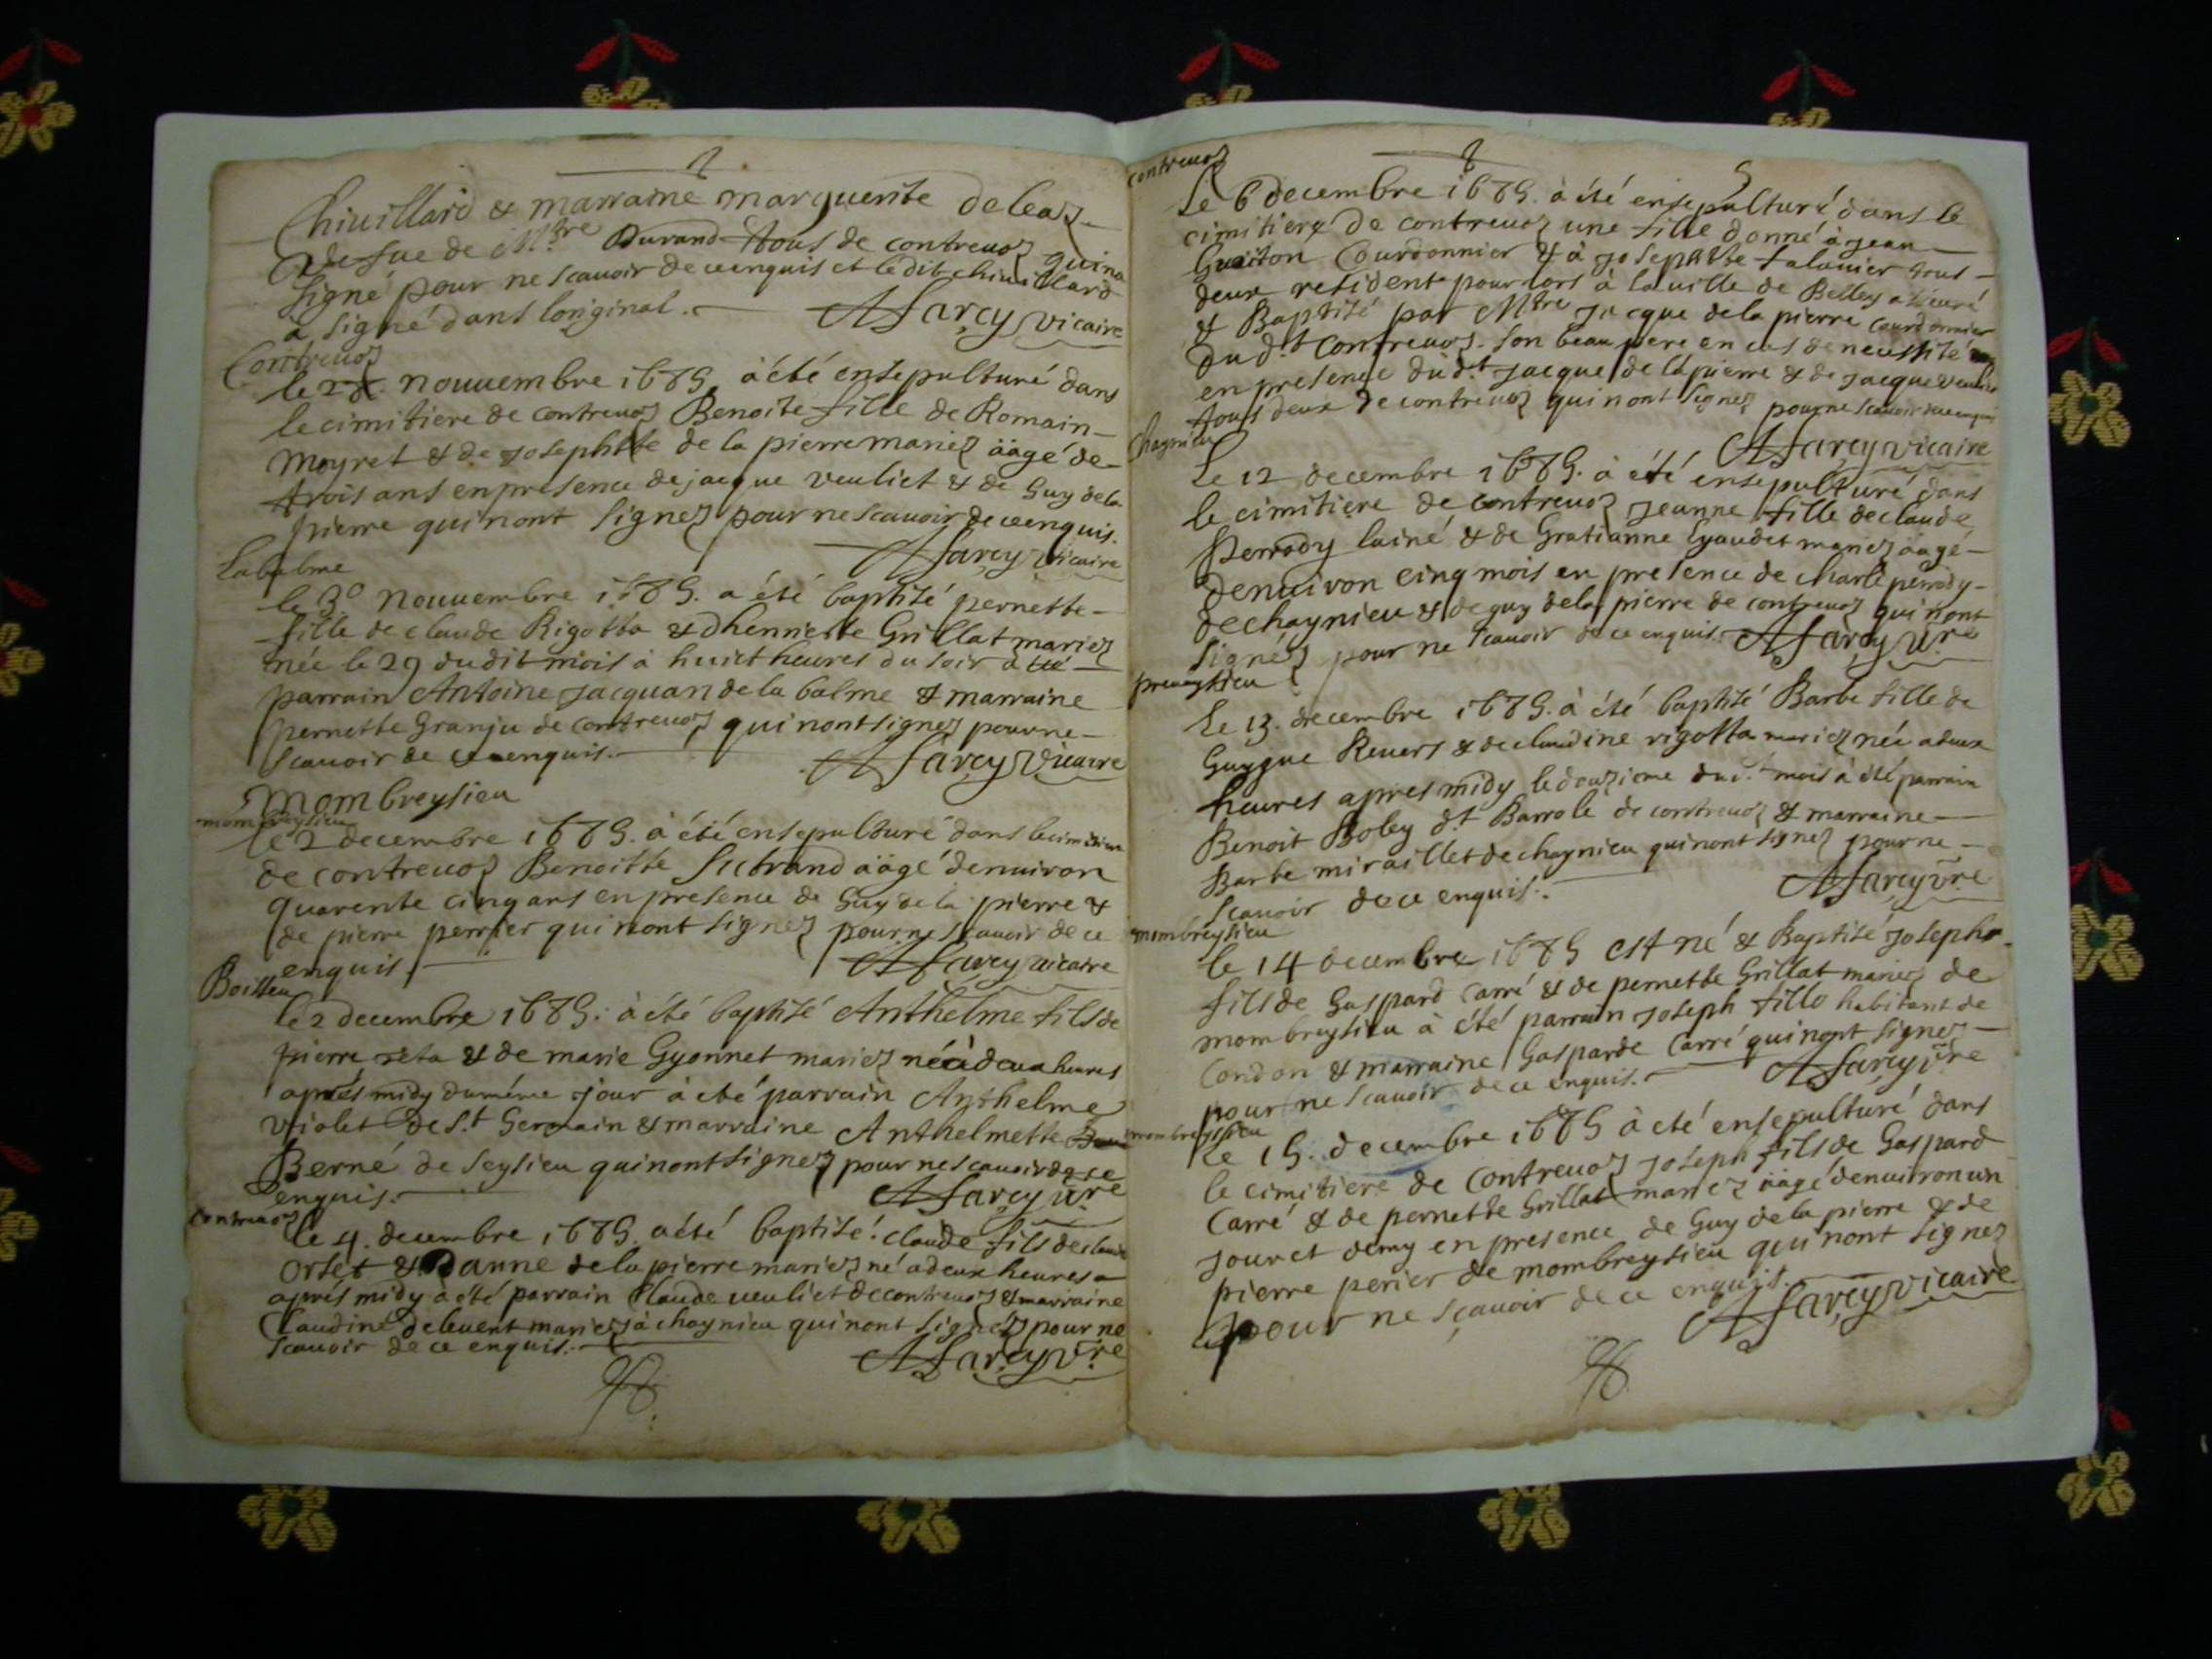 Chiuillard & marraine marguerite deleaz
vefue de Mtre Durand tous de contreuoz qui na
signé pour ne scauoir de ce enquis et ledit chiuillard
à signé dans loriginal. A farcy vicaire
Contreuoz
le nouuembre 1689 à été ensepulturé dans
le cimitiere de contreuoz Benoite fille de Romain
Moyret & de Josephte de la pierre mariez äagé de
trois ans en presence de jacque veuliet & de Guy dela
pierre qui nont signez pour ne scauoir de ce enquis.
A farcy vicaire
Labalme
le 30 nouuembre 1689. a été baptisé pernette
fille de claude Rigotta & dhenriette Grillat mariez
née le 29 dudit mois à huict heures du soir a été
parrain Antoine Jacquan de la balme & marraine
pernette Granju de Contreuoz qui nont signez pour ne
scauoir de ce enquis. A farcy vicaire
Mombreysieu
mombreysieu
le 2 decembre 1689. à été ensepulturé dans le cimitiere
de contreuoz Benoitte äagé denuiron
quarente cinq ans en presence de Guy de la pierre &
de pierre perrier qui nont signez pour ne scauoir de ce
enquis. A farcy vicaire
Boissieu
le 2 decembre 1689. à été baptisé Anthelme fils de
pierre & de marie Gyonnet mariez né à deux heures
aprés midy du méme jour à eté parrain Anthelme
violet de St Germain & marraine Anthelmette
Berné de Seysieu qui nont signez pour ne scauoir de ce
enquis. A farcy vre
contreuoz
le 4. decembre 1689. a été baptisé. claude fils de claude
Orset & Danne de la pierre mariez né a deux heures
aprés midy à été parrain Claude ueuliet de contreuoz & marraine
Claudine deleuent mariez à chaynieu qui nont signez pour ne
scauoir de ce enquis. A farcy vre
contreuoz
5
Le 6 decembre 1689. à été ensepulturé dans le
cimitiere de contreuoz une fille donné à jean
Guiton Courdonnier & à josephte falauier tous
deux residents pour lors à la uille de Belley
& Baptisé par Mtre jacque de la pierre courdonnier
dudt Contreuoz. son beau pere en cas de necessité
en presence dudt jacque de la pierre & de jacque veuliet
tous deux de contreuoz qui nont signez pour ne scauoir de ce enquis
A farcy vicaire
Chaynieu
Le 12 decembre 1689. à été ensepulturé dans
le cimitiere de contreuoz jeanne fille de claude
perrody lainé & de Gratianne Gyaudet mariez äagé
denuiron cinq mois en presence de charle perrody
de chaynieu & de guy dela pierre de contreuoz qui nont
signéz pour ne scauoir de ce enquis. A farcy vre
premeysieu
Le 13. decembre 1689. à été baptisé Barbe fille de
Guygue Reuers & de claudine rigotta mariez née a deux
heures apres midy le douzieme dudt mois à été parrain
Benoit Boley dt Barrole de contreuoz & marraine
Barbe miraillet de chaynieu qui nont signez pour ne
scauoir de ce enquis. A farcy vre
mombreysieu
le 14 decembre 1689 est né & Baptisé joseph
fils de Gaspard Carré & de pernette Grillat mariez de
mombreysieu à été parrain joseph fillo habitant de
Condon & marraine Gasparde Carré qui nont signez
pour ne scauoir de ce enquis. A farcy vre
mombreysieu
Le 15. decembre 1689 à eté ensepulturé dans
le cimitiere de Contreuoz joseph fils de Gaspard
Carré & de pernette Grillat mariez äagé denuiron un
jour et demy en presence de Guy de la pierre & de
pierre perier de mombreysieu qui nont signez
pour ne sçauoir de ce enquis.
A farcy vicaire